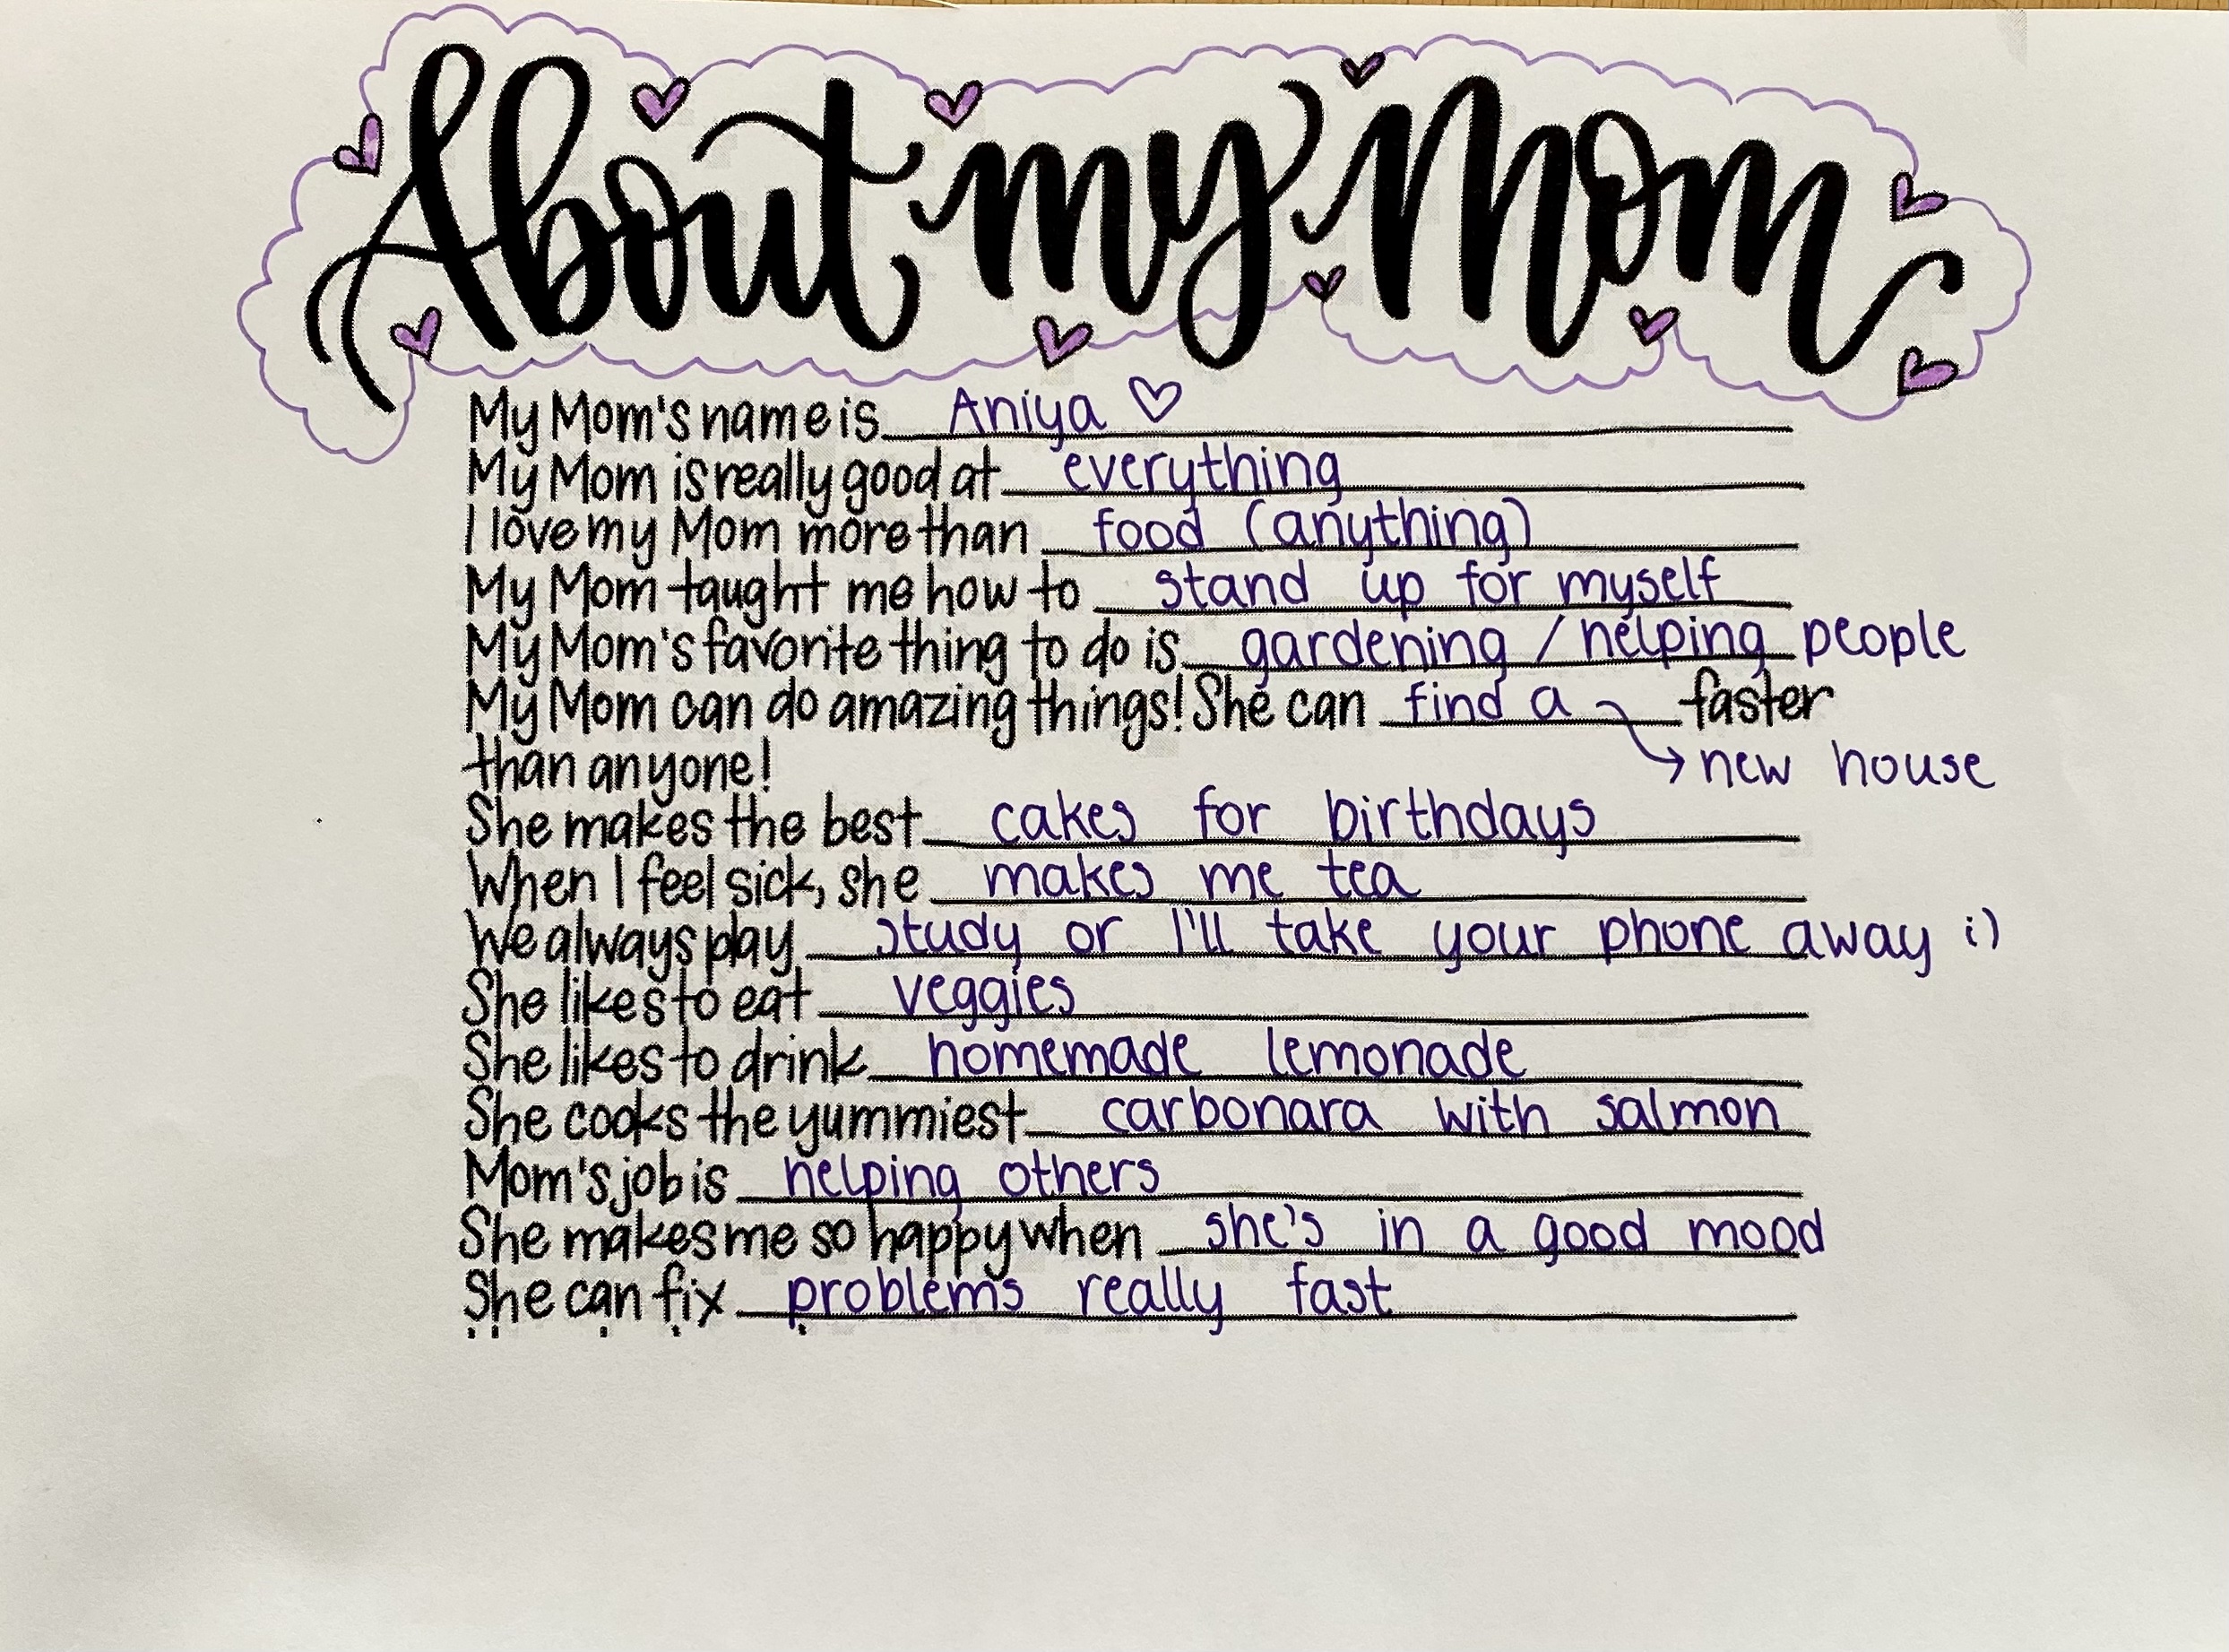 About my Mom
My Mom's name is Aniya ♡
My Mom is really good at everything
I love my Mom more than food (anything)
My Mom taught me how to stand up for myself
My Mom's favorite thing to do is gardening / helping people
My Mom can do amazing things! She can find a faster
than anyone! → new house
She makes the best cakes for birthdays
When I feel sick, she makes me tea
We always play study or I'll take your phone away :)
She likes to eat veggies
She likes to drink homemade lemonade
She cooks the yummiest carbonara with salmon
Mom's job is helping others
She makes me so happy when she's in a good mood
She can fix problems really fast